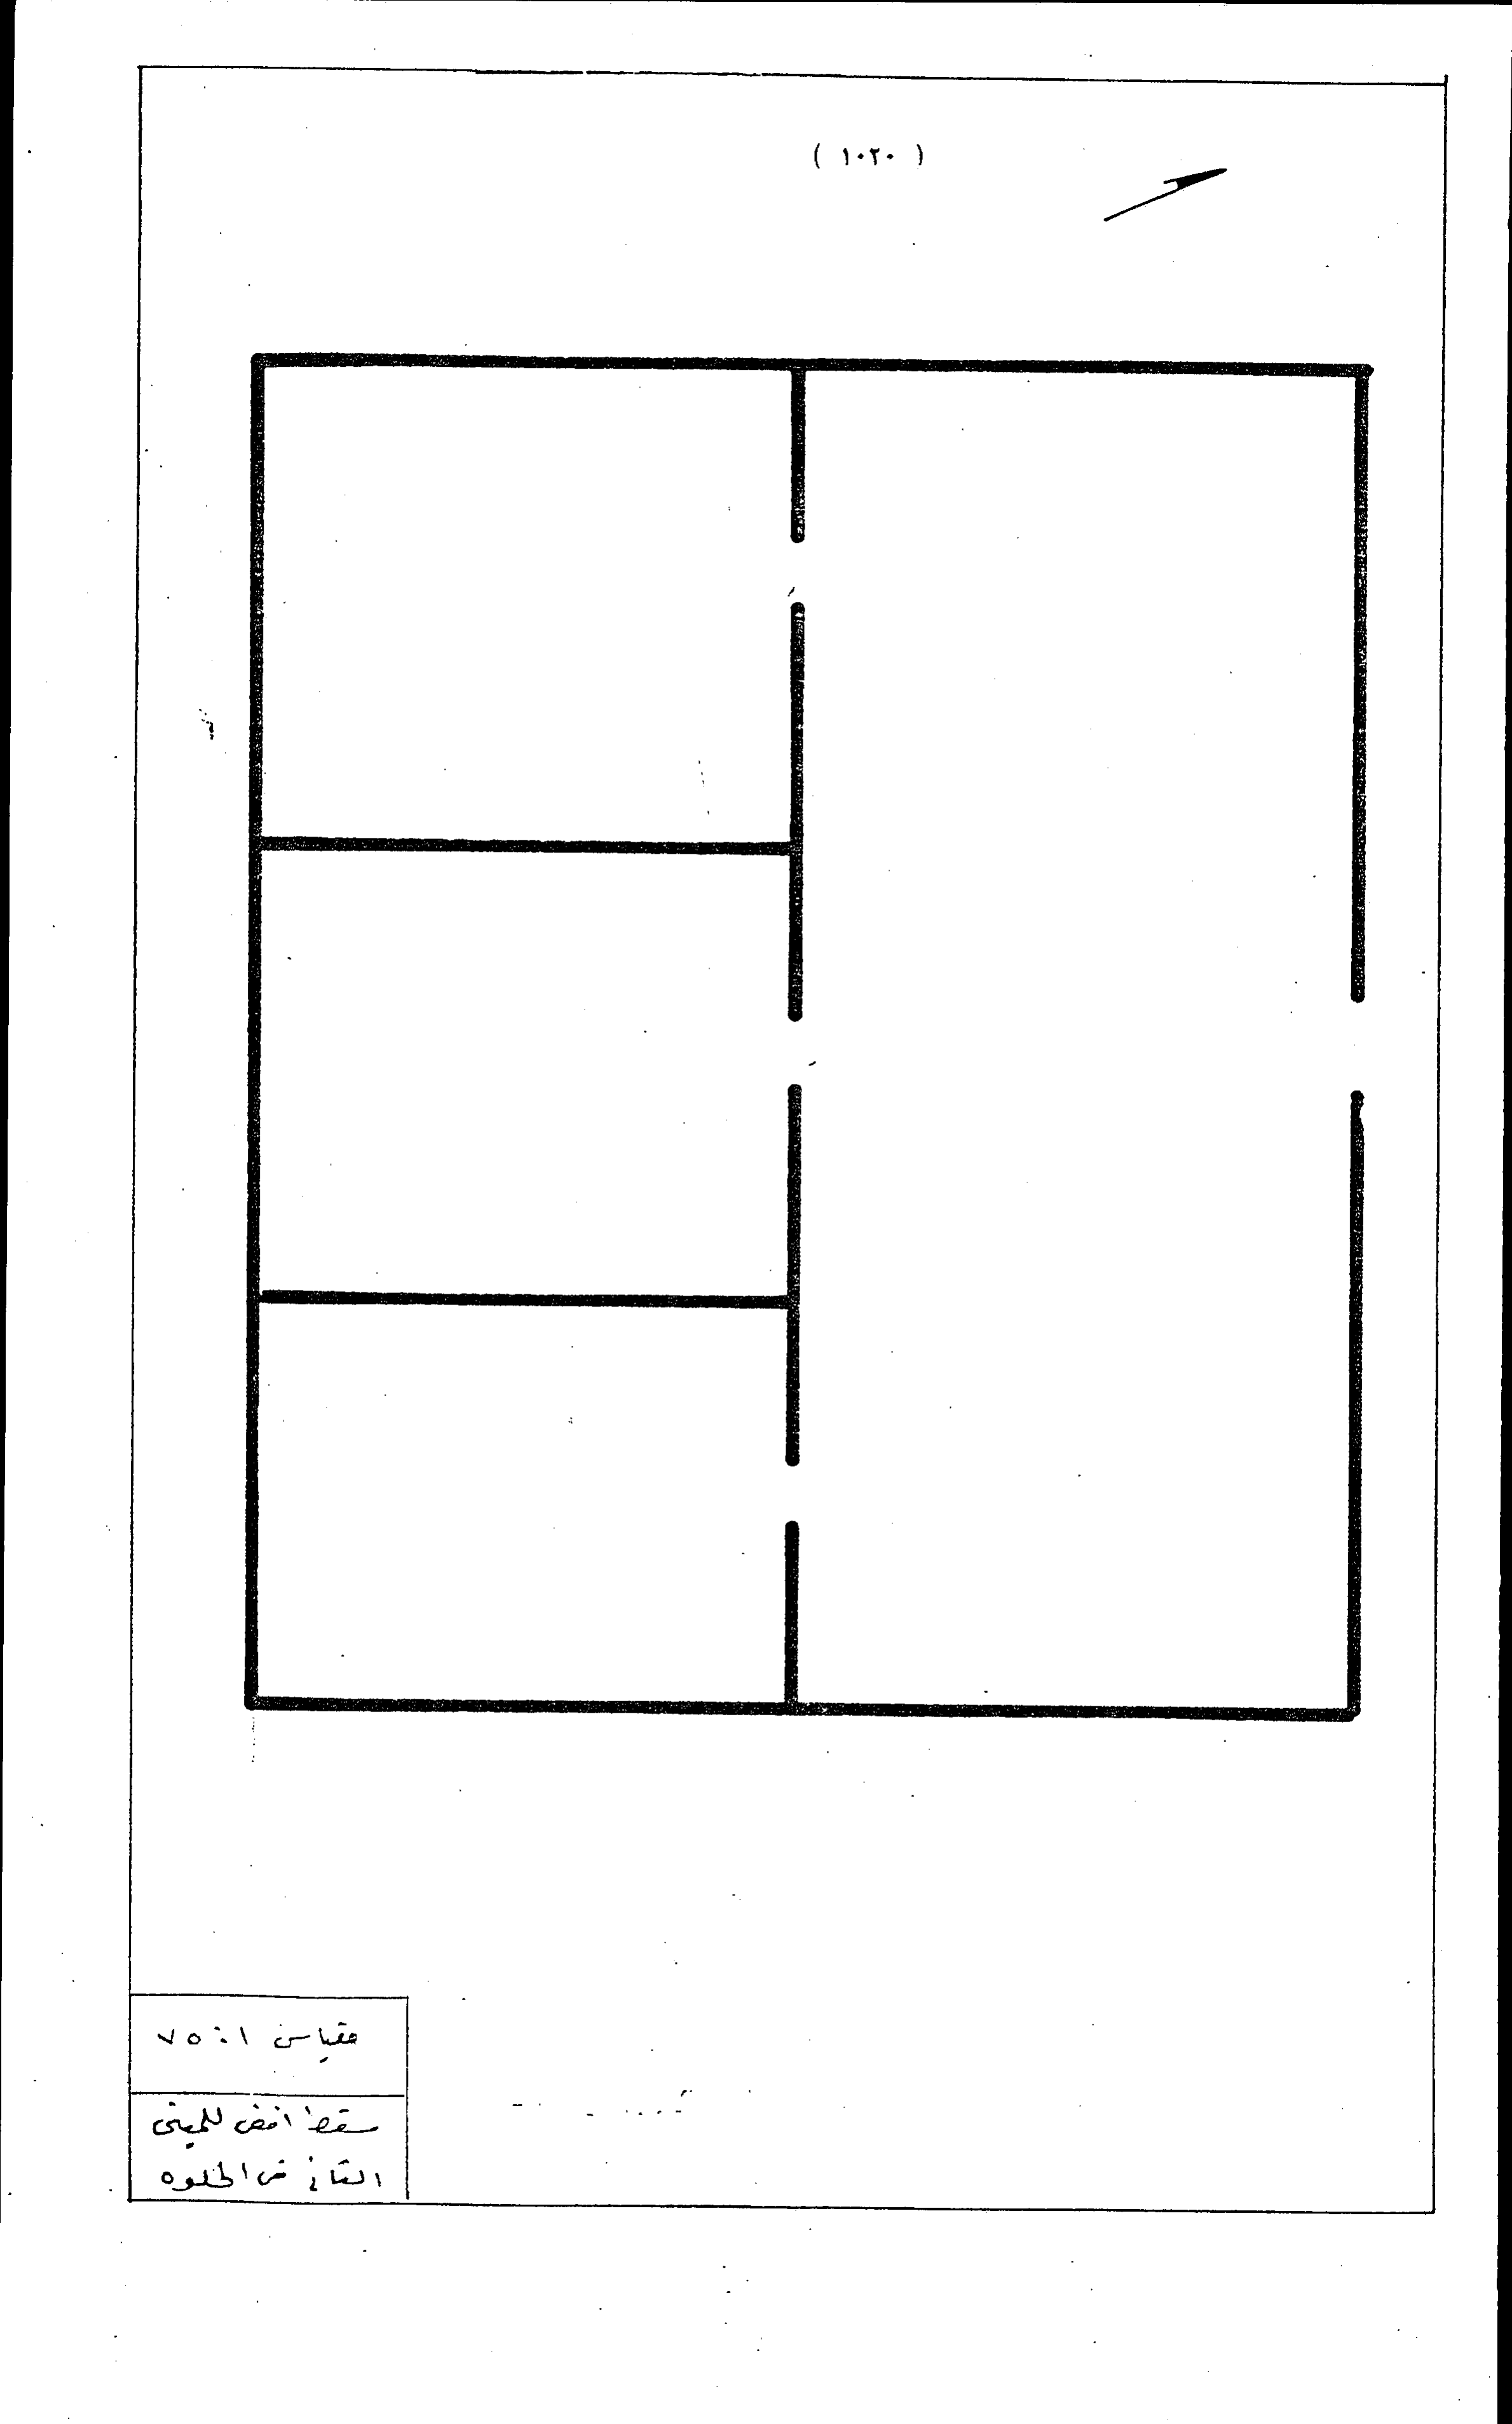 ( ١٠٢٠ )
مقياس ١ : ٧٥
مسقط افقى للمبنى
الثانى من الخلوه